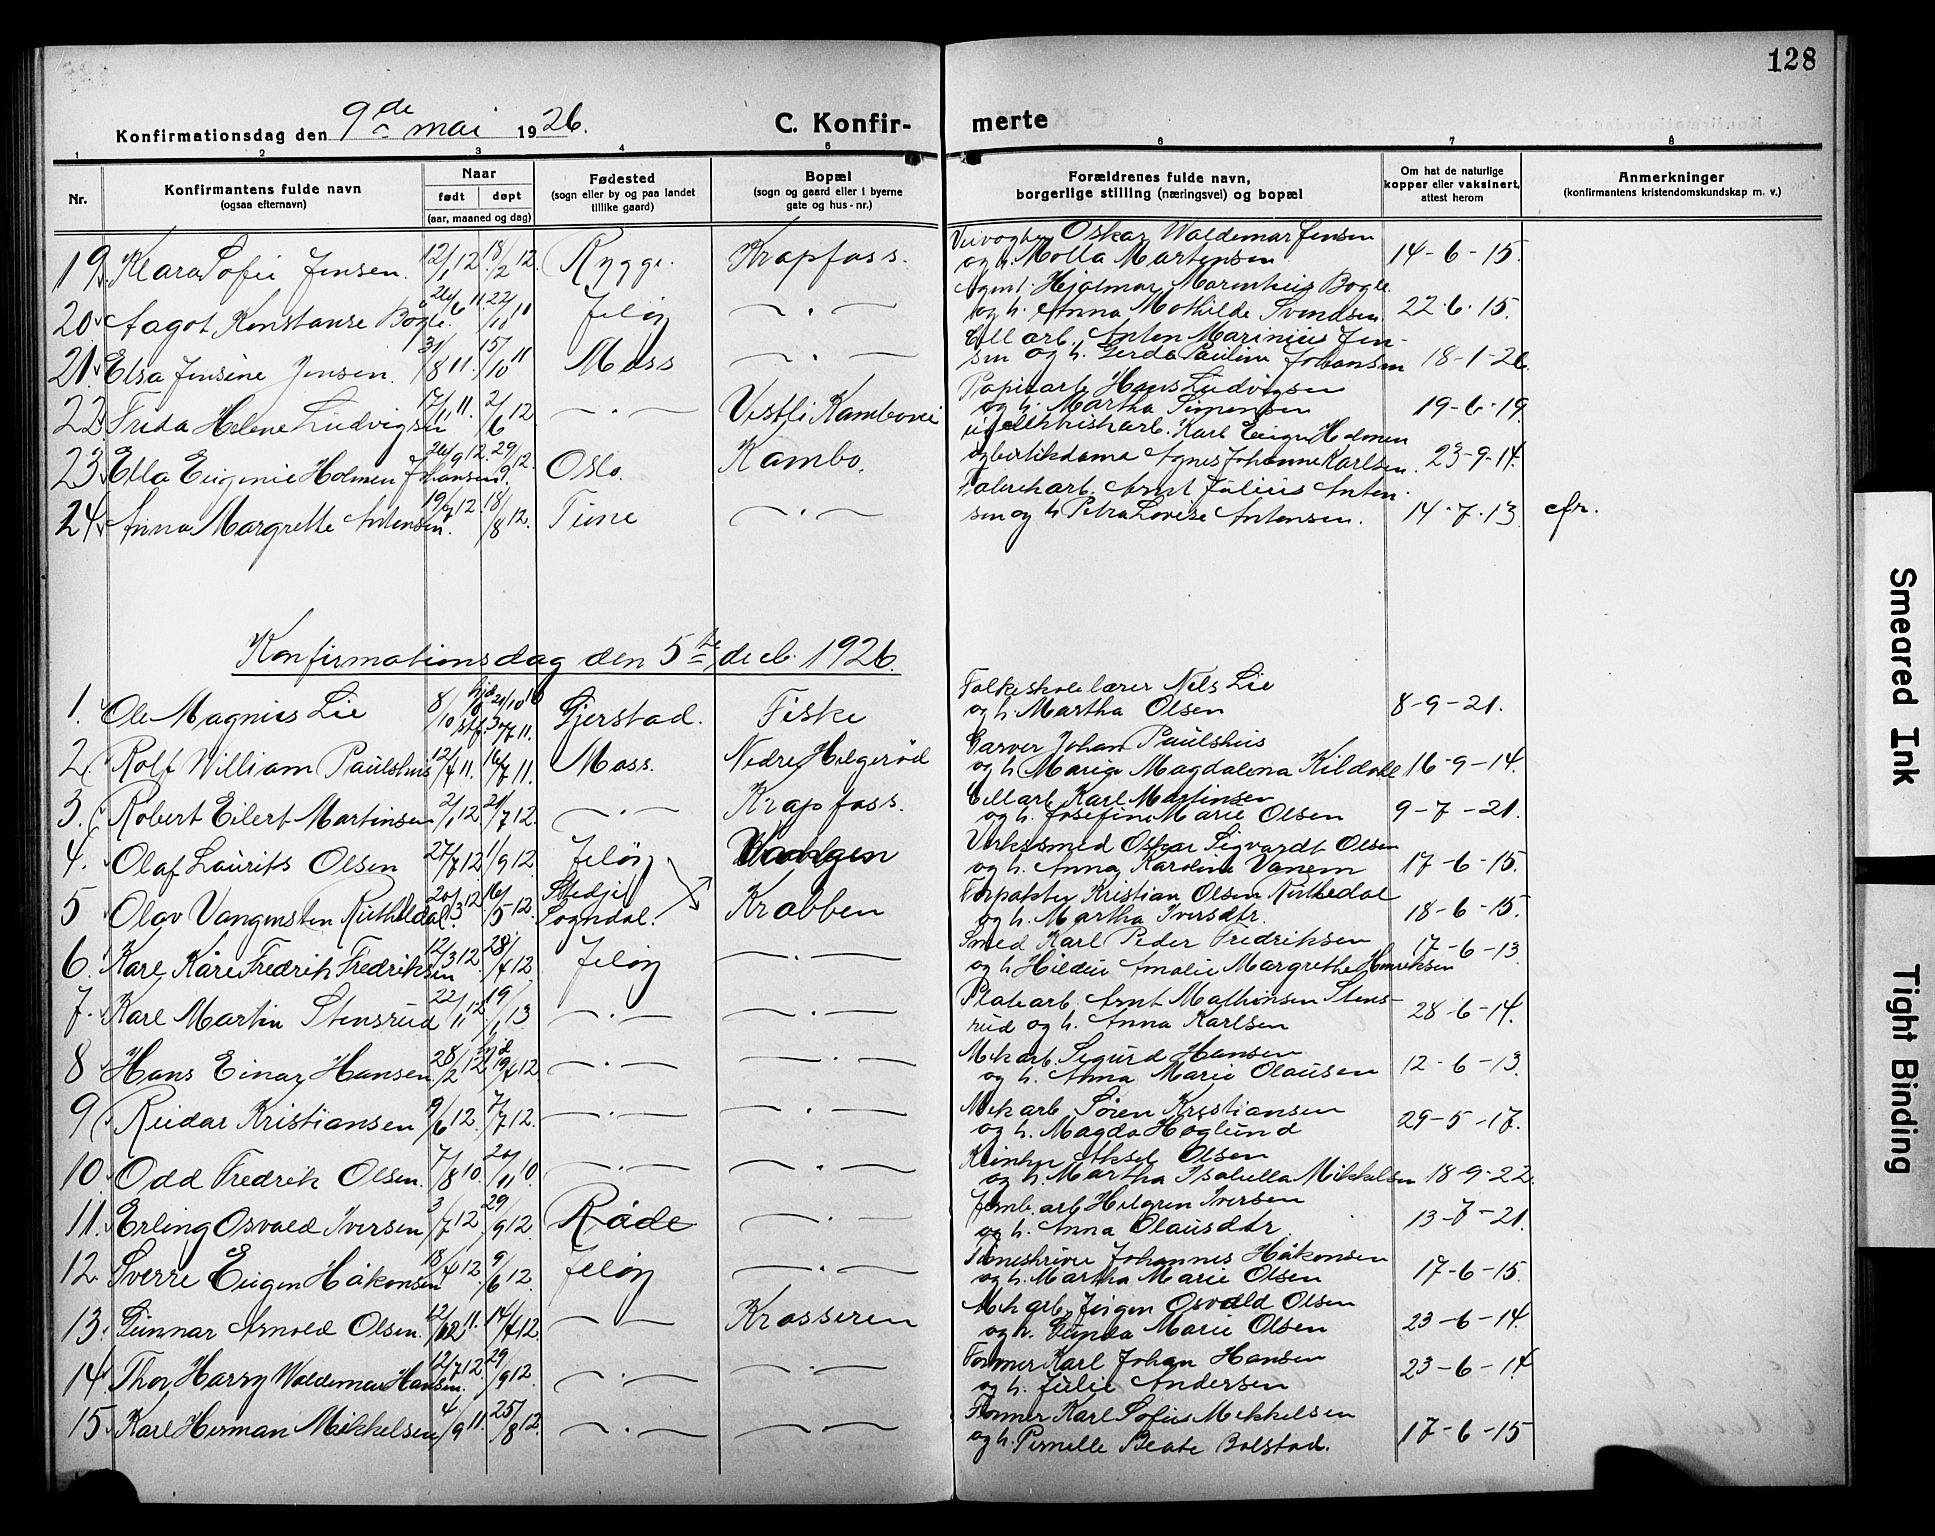 128
Konfirmationsdag den 9de mai 1926.
C. Konfirmerte
1 2 3 4 5 6 7 8
Nr.
Konfirmantens fulde navn
(ogsaa efternavn)
Naar
født døpt
(aar, maaned og dag)
Fødested
(sogn eller by og paa landet
tillike gaard)
Bopæl
(sogn og gaard eller i byerne
gate og hus-nr.)
Forældrenes fulde navn,
borgerlige stilling (næringsvei) og bopæl
Om hat de naturlige
kopper eller vaksinert,
attest herom
Anmerkninger
(konfirmantens kristendomskundskap m. v.)
19. Klara Sofie Jensen. 12/1 12. 18/2 12. Rygge. Krapfoss. Veivogter Oskar Waldemar Jensen
og h. Molla Martensen 14-6-15.
20. Aagot Konstanse Bogle. 26/6 11. 22/10 11 Jeløy — . — Agent Hjalmar Marentius Bogle
og h. Anna Mathilde Svendsen. 22-6-15.
21. Elsa Jensine Jensen. 31/8 11. 15/10 11 Moss — . — Cell arb. Anton Marinius Jen-
sen og h. Gerda Pauline Johansen 18-1-26.
22. Frida Helene Ludvigsen 17/11 11. 2/6 12 — . — Vestli Kambovei Papirarb Hans Ludvigsen
og h. Martha Simensen 19-6-19.
23. Ella Eugenie Holmen Johansen 26/9 12. 29/9 12. Oslo. Kambo. elektrisk arb. Karl Eugen Holmen
og butikdame Agnes Johanne Karlsen. 23-9-14.
24. Anna Margrethe Antonsen. 19/7 12. 18/8 12. Tune — . — Fabrikarb. Arnt Julius Anton-
sen og h Petra Lovise Antonsen. 14-7-13. cfr.
Konfirmationsdag den 5te decb. 1926.
1. Ole Magnus Lie 8/10 Gjerstad. Fiske Folkeskolelærer Nels Lie
og h. Martha Olsen 8-9-21.
2. Rolf William Paulshus 12/4 11. 16/7 11. Moss. Nedre Helgerød Garver Johan Paulshus
og h. Marie Magdalena Kildahl 16-9-14.
3. Robert Eilert Martinsen 2/1 12 21/7 12. — . — Krapfoss. Cellarb Karl Martinsen
og h. Josefine Marie Olsen 9-7-21.
4. Olaf Laurits Olsen 27/7 12. 1/9 12. Jeløy Vangen Verkssmed Oskar Sigvardt Olsen
og h. Anna Karoline Vanem 17-6-15.
5 Olav Vangensten Rutledal. 20/3 12 16/5 12. Stedje Sogndal. Krabben Forpakter Kristian Olsen Rutledal
og h. Martha Iversdtr. 18-6-15.
6. Karl Kåre Fredrik Fredriksen 12/3 12. 28/4 12 Jeløy — . — Smed Karl Peder Fredriksen
og h Hildur Amalie Margrethe Henriksen 17-6-13.
7. Karl Martin Stensrud 22/11 12 19/1 13 — . — — . — Platearb. Arnt Mathinsen Stens-
rud og h. Anna Karlsen 28-6-14.
8 Hans Einar Hansen. 28/2 12 19/4 12. — . — — . — Mek arb. Sigurd Hansen
og h. Anna Marie Olausen 12-6-13.
9 Reidar Kristiansen 9/6 12. 7/7 12. — . — — . — Mek arb Søren Kristiansen
og h. Magda Høglund 29-5-17.
10. Odd Fredrik Olsen. 7/8 10. 20/11 10 — . — — . — Aksel Olsen
og h. Martha Isabella Mikkelsen 18-9-22.
11. Erling Osvald Iversen 3/7 12 29/9 12. Råde — . — Jernb. arb Helgren Iversen
og h. Anna Olausdtr. 13-7-21.
12. Sverre Eugen Håkonsen 18/4 12. 9/6 12. Jeløy — . — Timeskriver Johannes Håkonsen
og h. Martha Marie Olsen 17-6-15.
13. Gunnar Arnold Olsen. 12/12 11. 14/4 12. — — Krosseren Mek arb. Jørgen Osvald Olsen
og h. Gunda Marie Olsen 23-6-14.
14. Thor Harry Waldemar Hansen. 12/7 12 29/9 12. — . — — . — Former Karl Johan Hansen
og h. Julie Andersen 23-6-14
15. Karl Herman Mikkelsen 4/9 11. 25/8 12. — . — — . — Former Karl Sofus Mikkelsen
og h. Pernelle Beate Bolstad. 17-6-15
Smeared Ink
Tight Binding